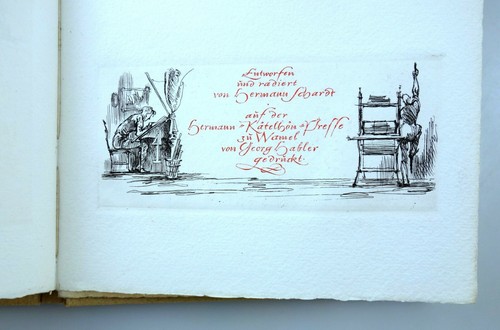 Entworfen
und radiert
von Hermann Schardt
auf der
Hermann-Kätelhön-Presse
zu Wamel
von Georg Habler
gedruckt.